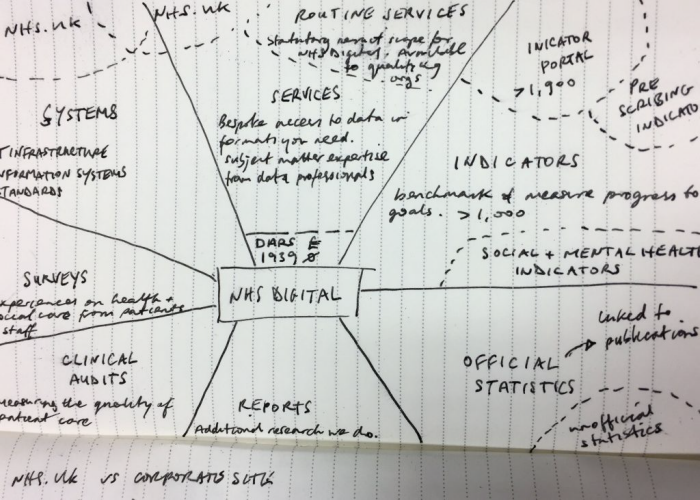 NHS.uk
NHS.uk
ROUTINE SERVICES
NHS Digital. Available
to qualifying
orgs.
INICATOR
PORTAL
>1,900
PRE
SCRIBING
INDICATO
SYSTEMS
T INFRASTRUCTURE
NFORMATION SYSTEMS
TANDARDS
SERVICES
Bespoke access to data in
formats you need.
subject matter expertise
from data professionals
INDICATORS
benchmark & measure progress to
goals. >1,000
DARS £
1959
SOCIAL + MENTAL HEALTH
INDICATORS
NHS DIGITAL
SURVEYS
xperiences on health +
ocial care from patients
staff
CLINICAL
AUDITS
measuring the quality of
patient care
REPORTS
Additional research we do.
OFFICIAL
STATISTICS
linked to
publications
unofficial
statistics
NHS.uk vs CORPORATE SITE